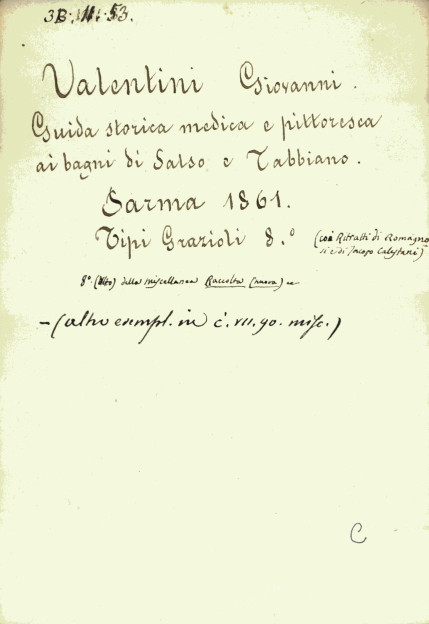 3B. III. 53.
Valentini Giovanni.
Guida storica medica e pittoresca
ai bagni di Salso e Tabbiano.
Parma 1861.
Tipi Grazioli 8.º (coi Ritratti di Romagno
si e di Jacopo Calestani)
8º (Otto) della miscellanea Raccolta (nuova)
– (altro esempl. in C. VII. 90. misc.)
C